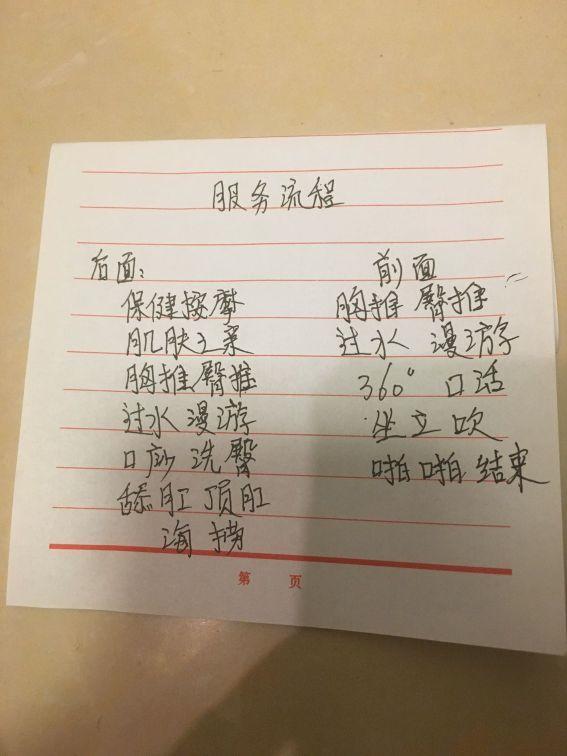 服务流程
后面：
保健按摩
肌肤之亲
胸推臀推
过水漫游
口吵洗臀
舔肛顶肛
海捞
前面
胸推 臀推
过水 漫游
360° 口活
坐立吹
啪啪结束
第 页